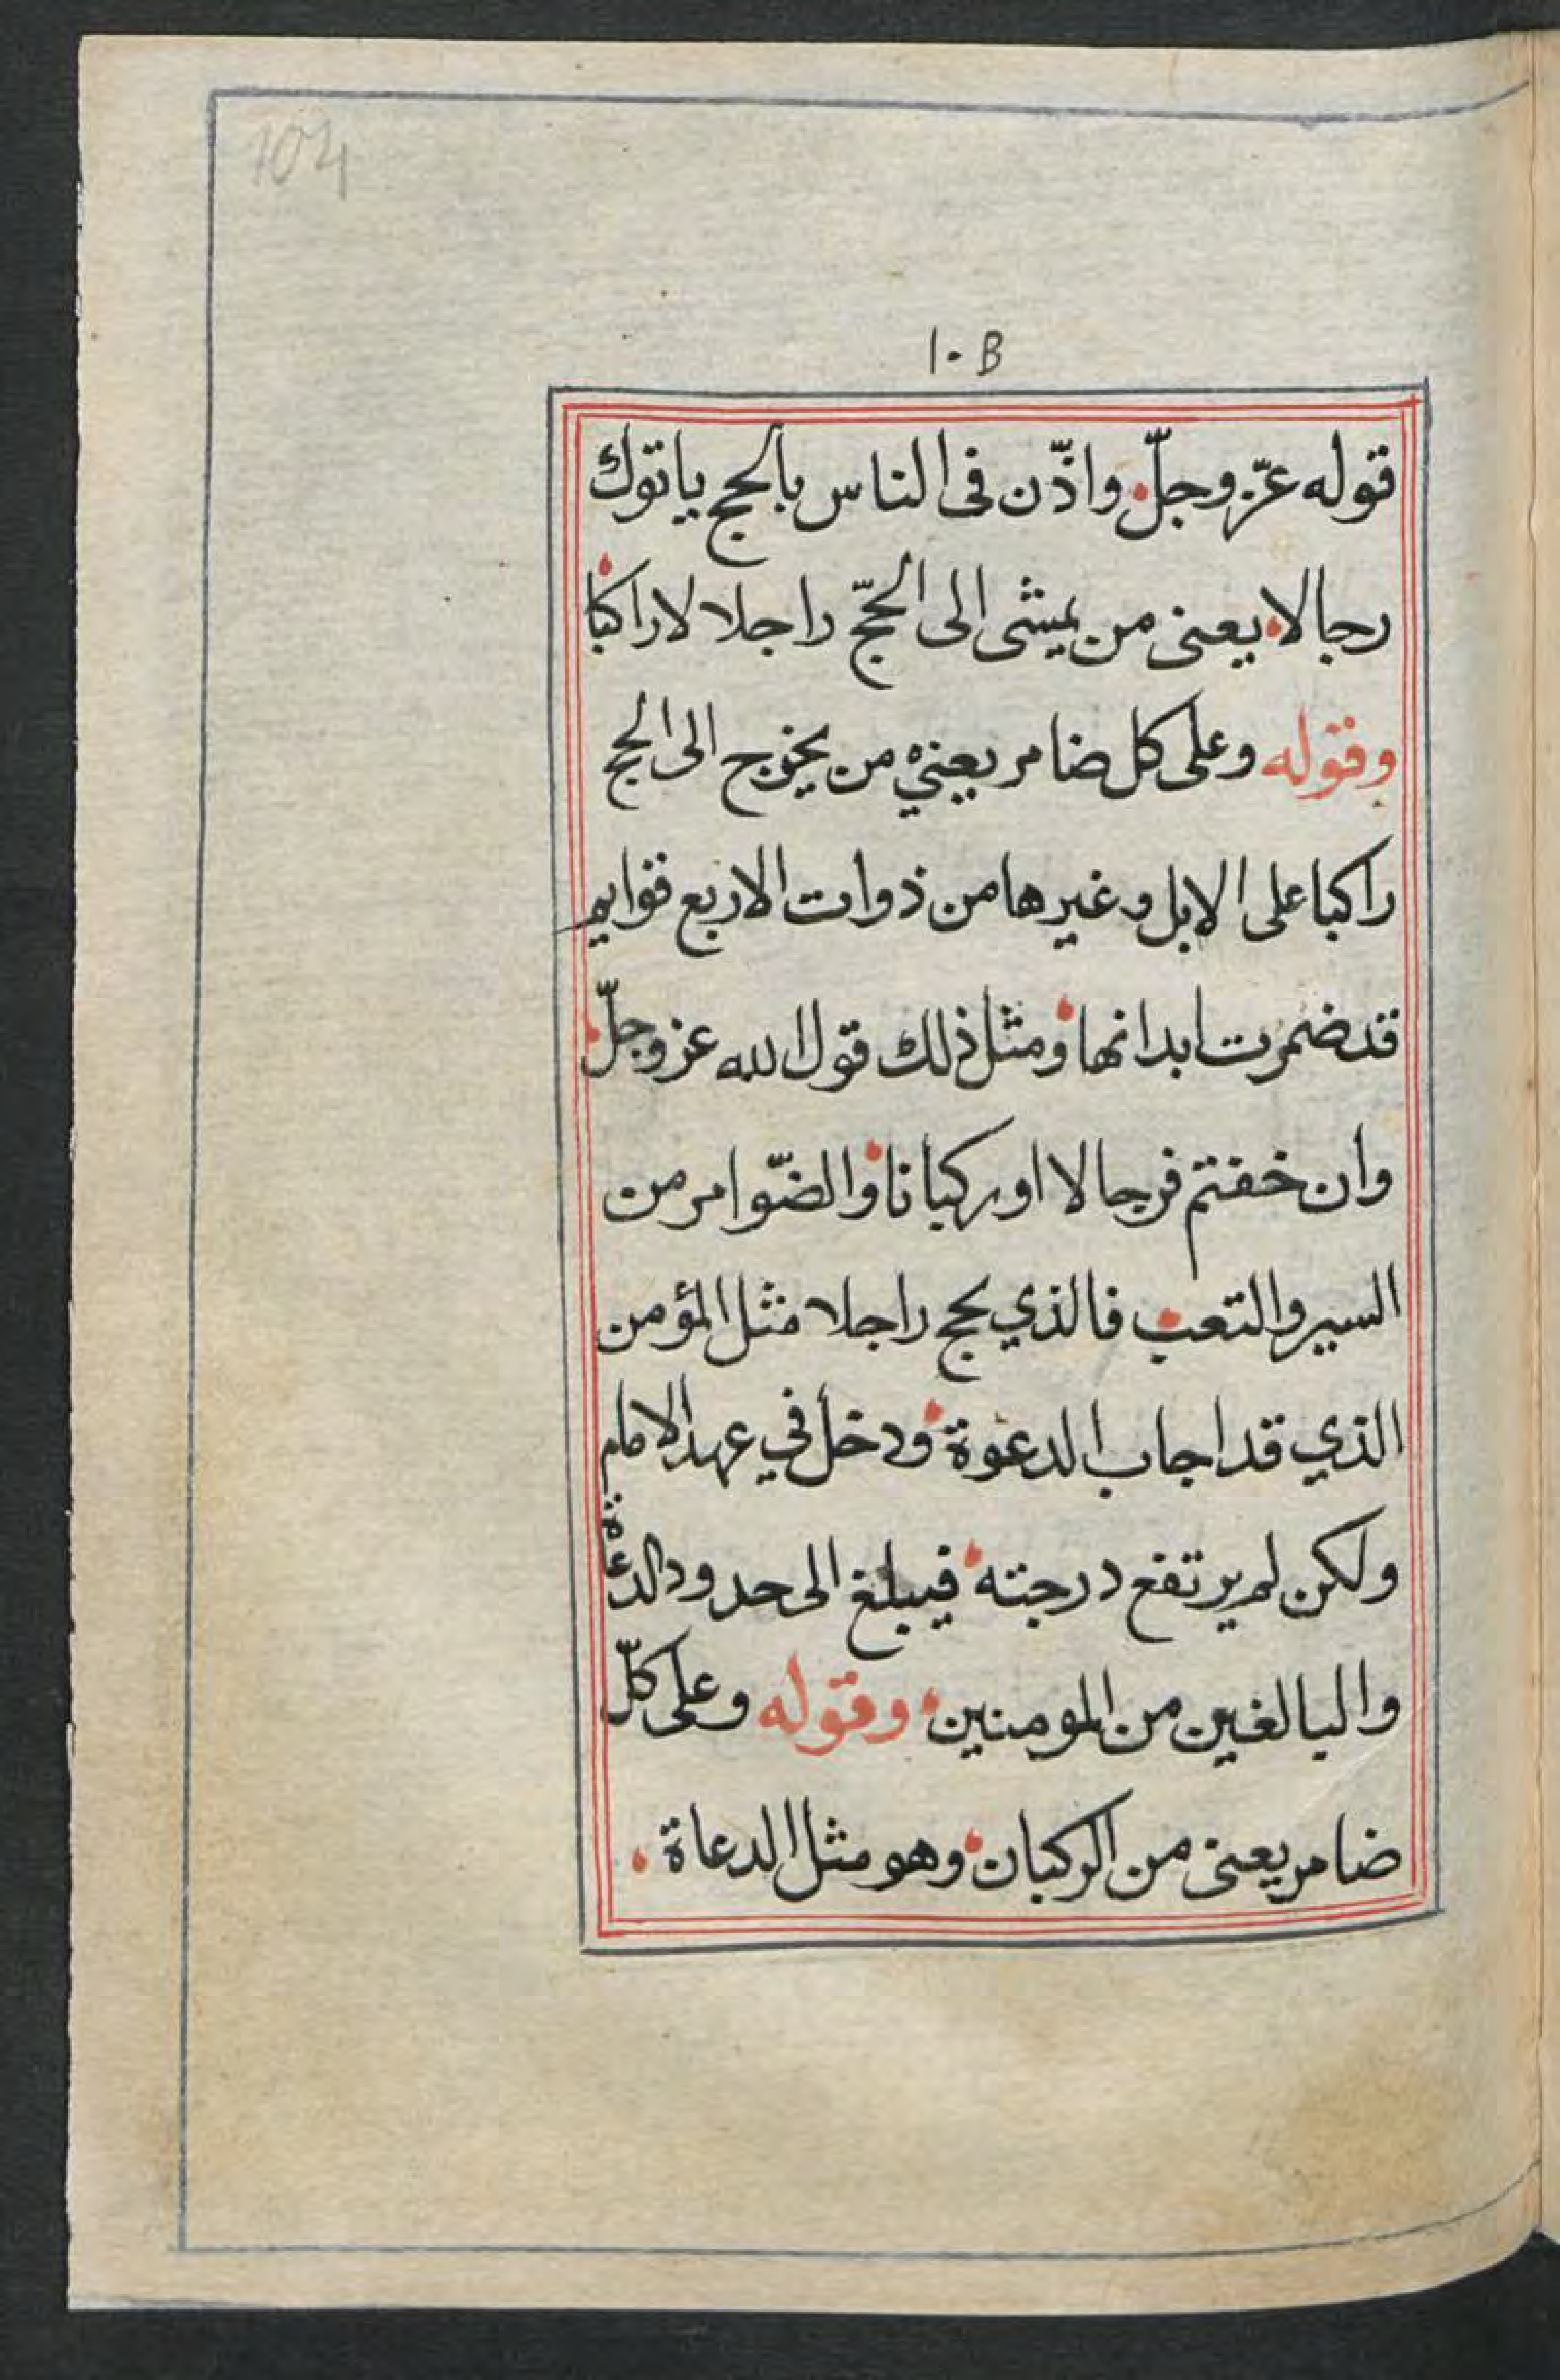 104
١٠٤
قوله عزّ وجلّ واذّن فى الناس بالحج ياتوك
رجالا يعنى من يمشى الى الحجّ راجلا لا راكبا
وقوله وعلى كل ضامر يعني من يخرج الى الحج
راكبا على الابل وغيرها من ذوات الاربع قوايم
قد ضمرت ابدانها ومثل ذلك قول الله عز وجلّ
وان خفتم فرجالا او ركبانا والضّوامر من
السير والتعب فالذي يحج راجلا مثل المؤمن
الذي قد اجاب الدعوة ودخل في عهد الامام
ولكن لم يرتفع درجته فيبلغ الى حدود الدعاة
والبالغين من المومنين وقوله وعلى كلّ
ضامر يعنى من الركبان وهو مثل الدعاة